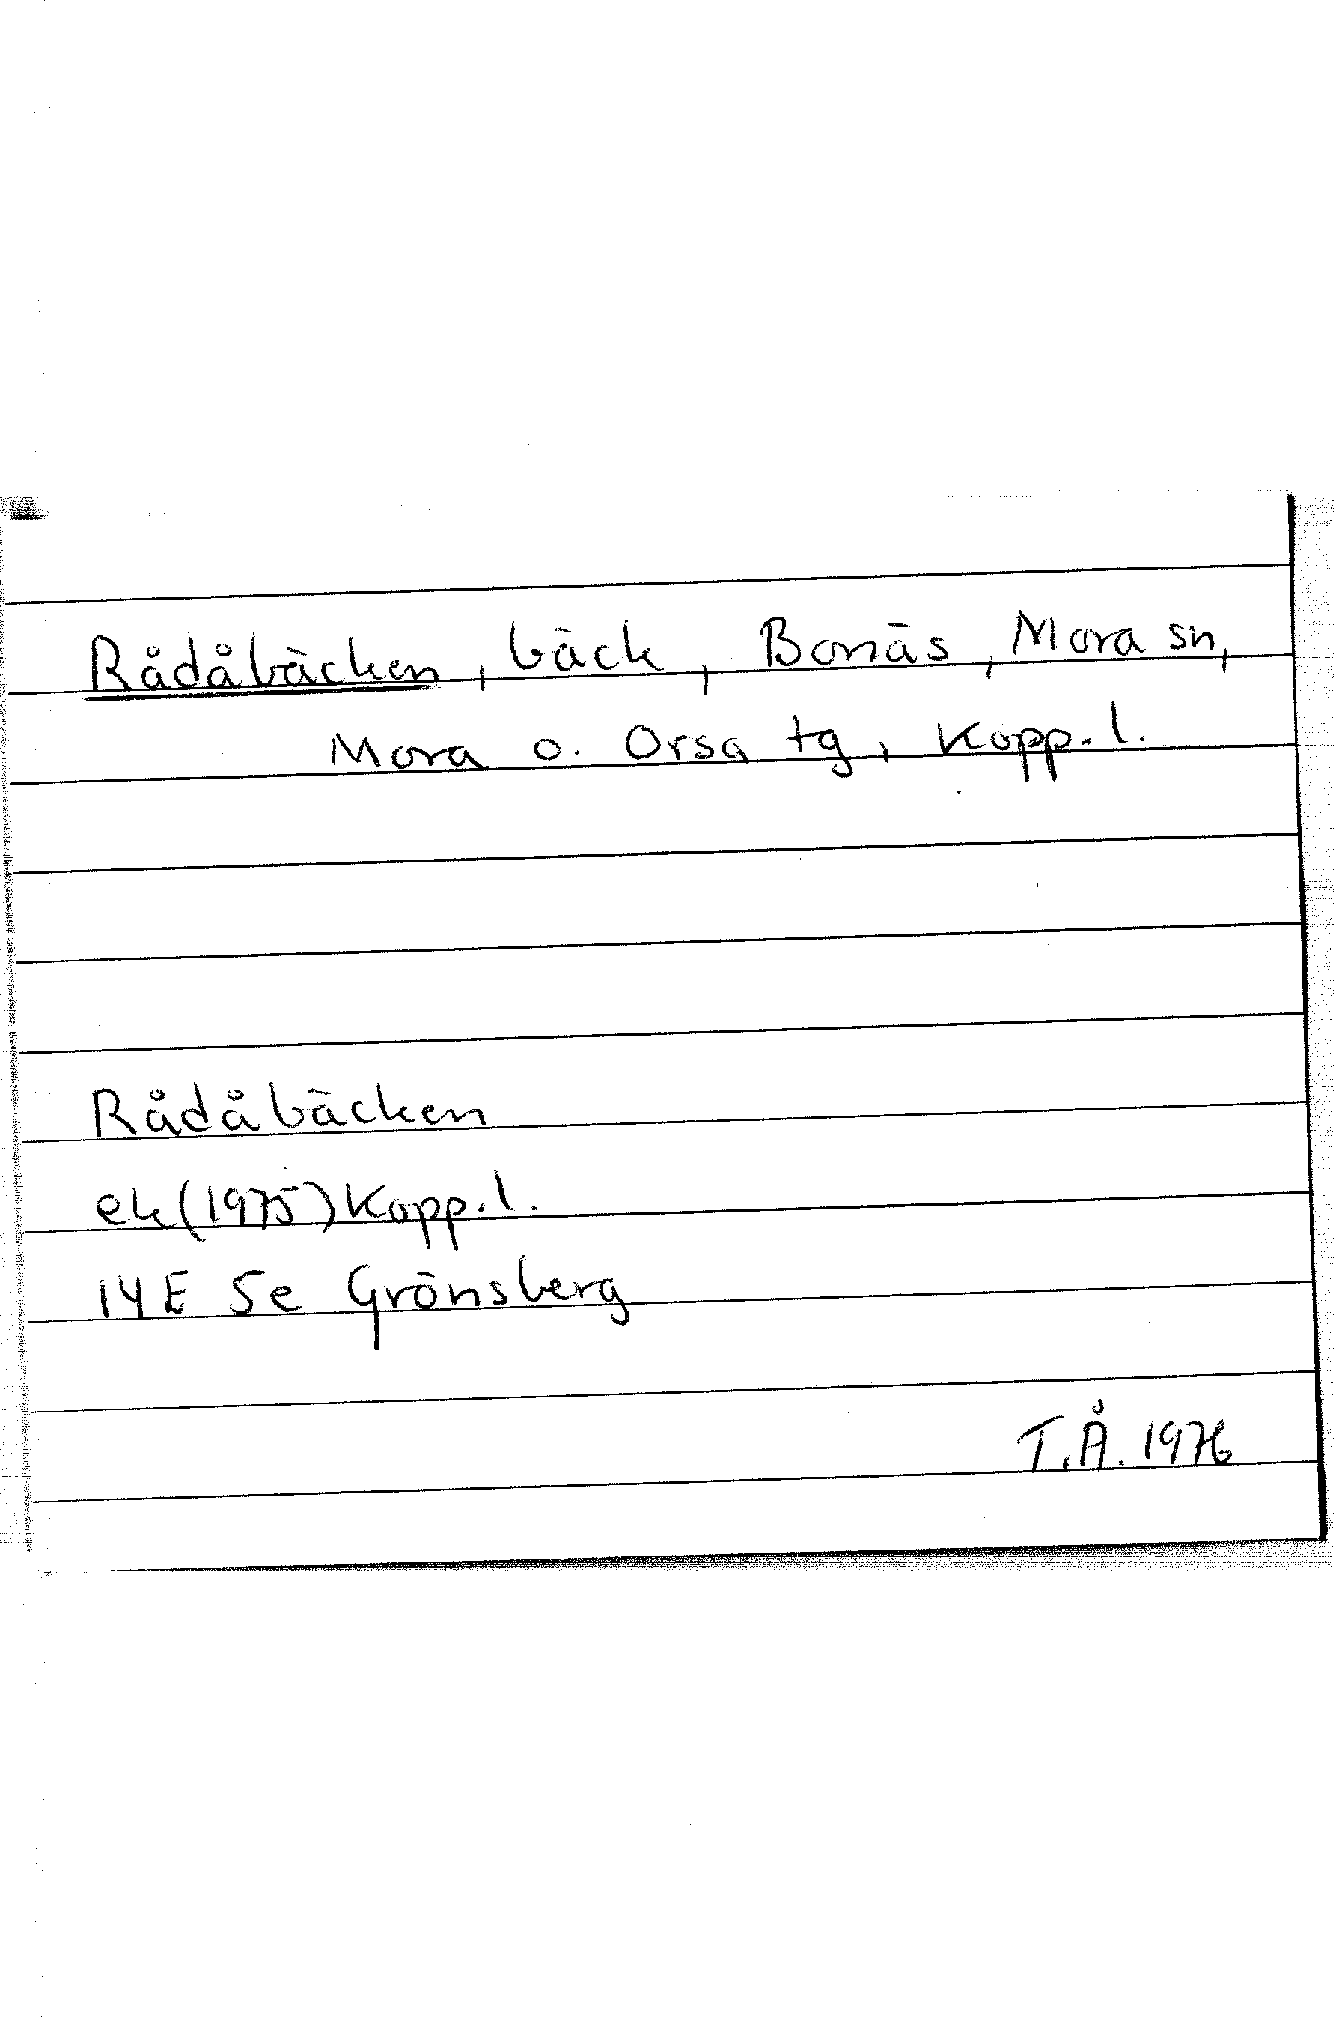 Rådåbäcken, bäck, Bonäs, Mora sn,
Mora o. Orsa tg, Kopp. l.
Rådåbäcken
ek (1975) Kopp. l.
14E 5e Grönsberg
T.Å. 1976